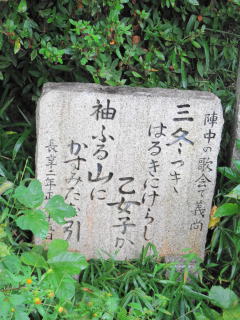 陣中の歌会で 義尚
三冬つき
はるきにけらし
乙女子か
袖ふる山に
かすみたな引
長享二年正月